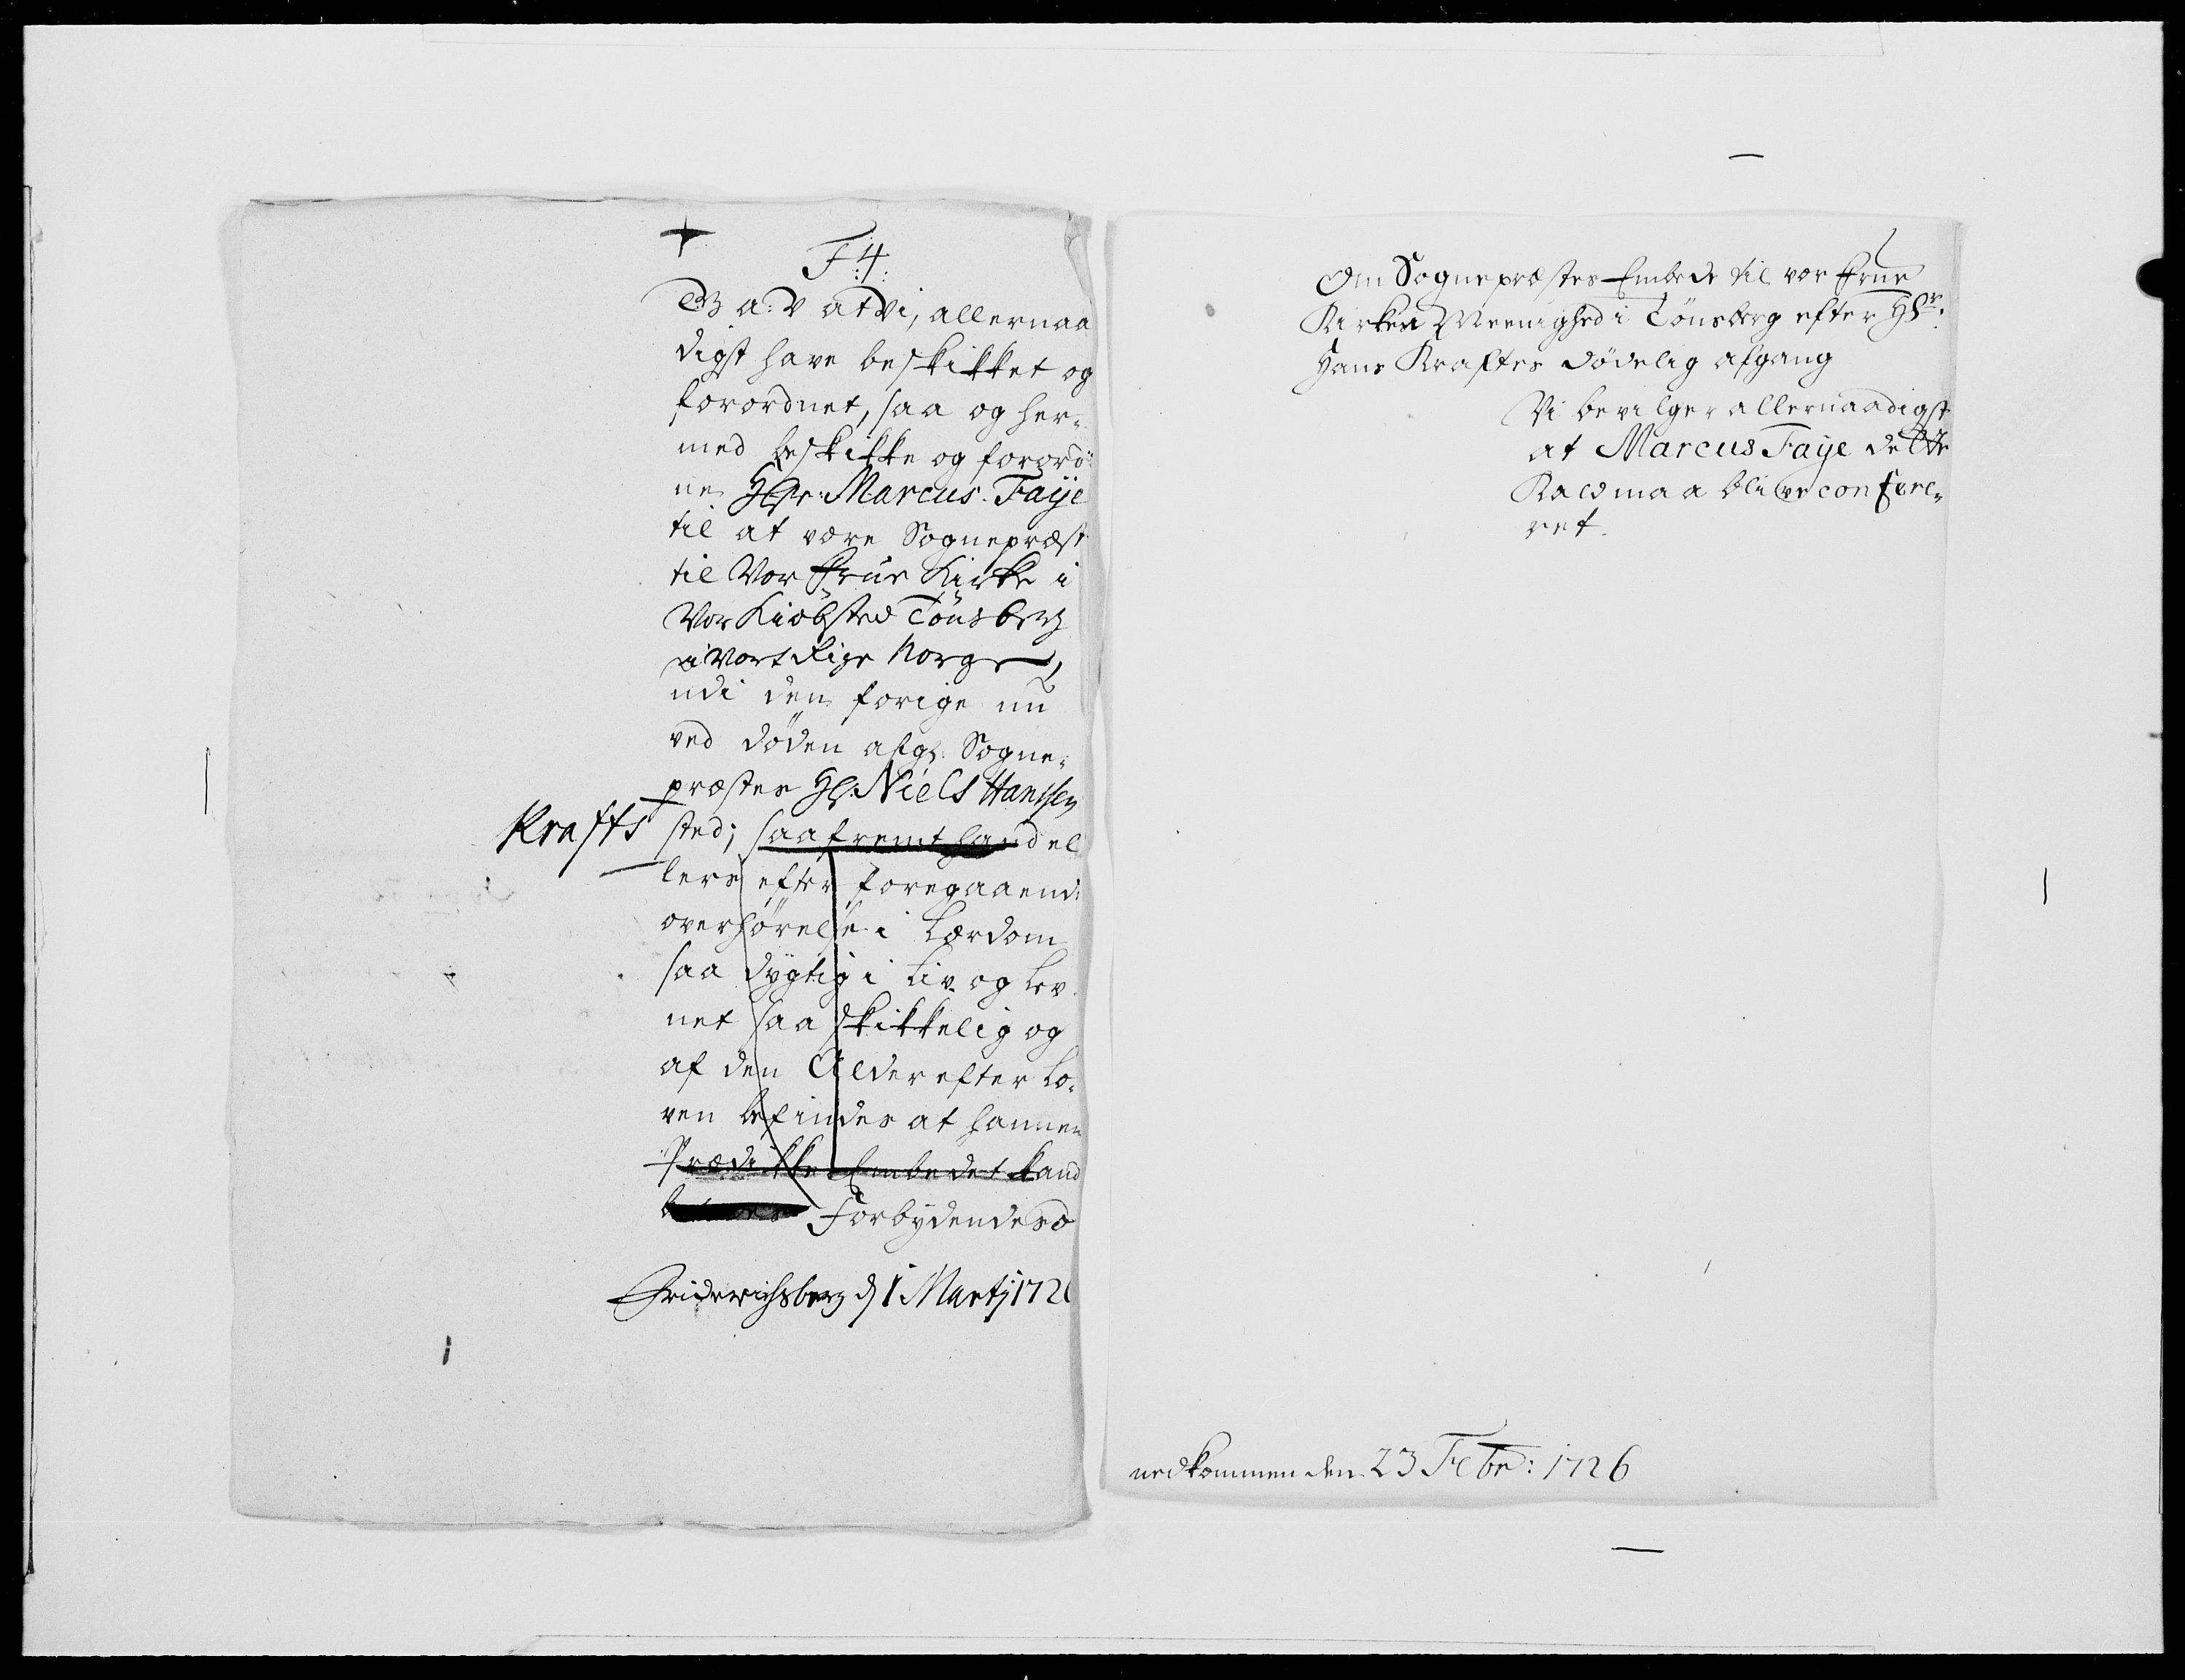 F:4:
G: a: V at Vi, allernaa
digst have beskikket og
forordnet, saa og her-
med beskikke og forord-
ne Hr: Marcus Faÿe
til at være Sognepræst
til Vor Frue Kirke i
Vor Kiøbsted Tønsberg
i Vort Rige Norge,
udi den forige nu
ved døden afg: Sogne-
præstes Hr: Niels Hanssen
Krafts
sted; saafremt hand el
lers efter foregaaende
overhørelse i Lærdom
saa dygtig i Liv og Lev
net saa skikkelig og
af den Alder efter Lo-
ven befindes at hannem
Prædikke Embedet kand
Forbydendes
Friderichsberg d 1 Martj 172
Om Sognepræstes Embede til vor Frue
Kirkes Meenighed i Tønsberg efter Hr.
Hans Kraftes dødelig afgang
Vi bevilger allernaadigst
at Marcus Faÿe dette
Kald maa blive confere-
ret.
nedkommen den 23 Febr: 1726